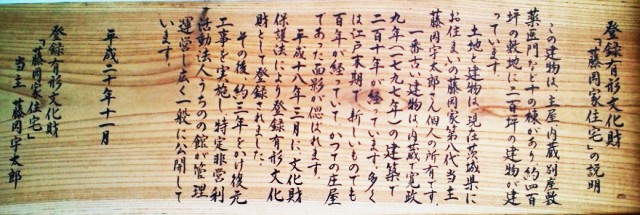 登録有形文化財
「藤岡家住宅」の説明
この建物は、主屋、内蔵、別座敷
薬医門など十の棟があり、約四百
坪の敷地に二百坪の建物が建
っています。
土地と建物は、現在茨城県に
お住まいの藤岡家第八代当主
藤岡宇太郎さん個人の所有です。
一番古い建物は、内蔵で寛政
九年(一七九七年)の建築で
二百十年が経っています。多く
は江戸末期で新しいものでも
百年が経っていて、かつての庄屋
であった面影が偲ばれます。
平成十八年三月に文化財
保護法により登録有形文化
財として登録されました。
その後、約三年をかけ復元
工事を実施し、特定非営利
活動法人うちのの館が管理
運営し広く一般に公開して
います。
平成二十年十一月
登録有形文化財
「藤岡家住宅」
当主 藤岡宇太郎